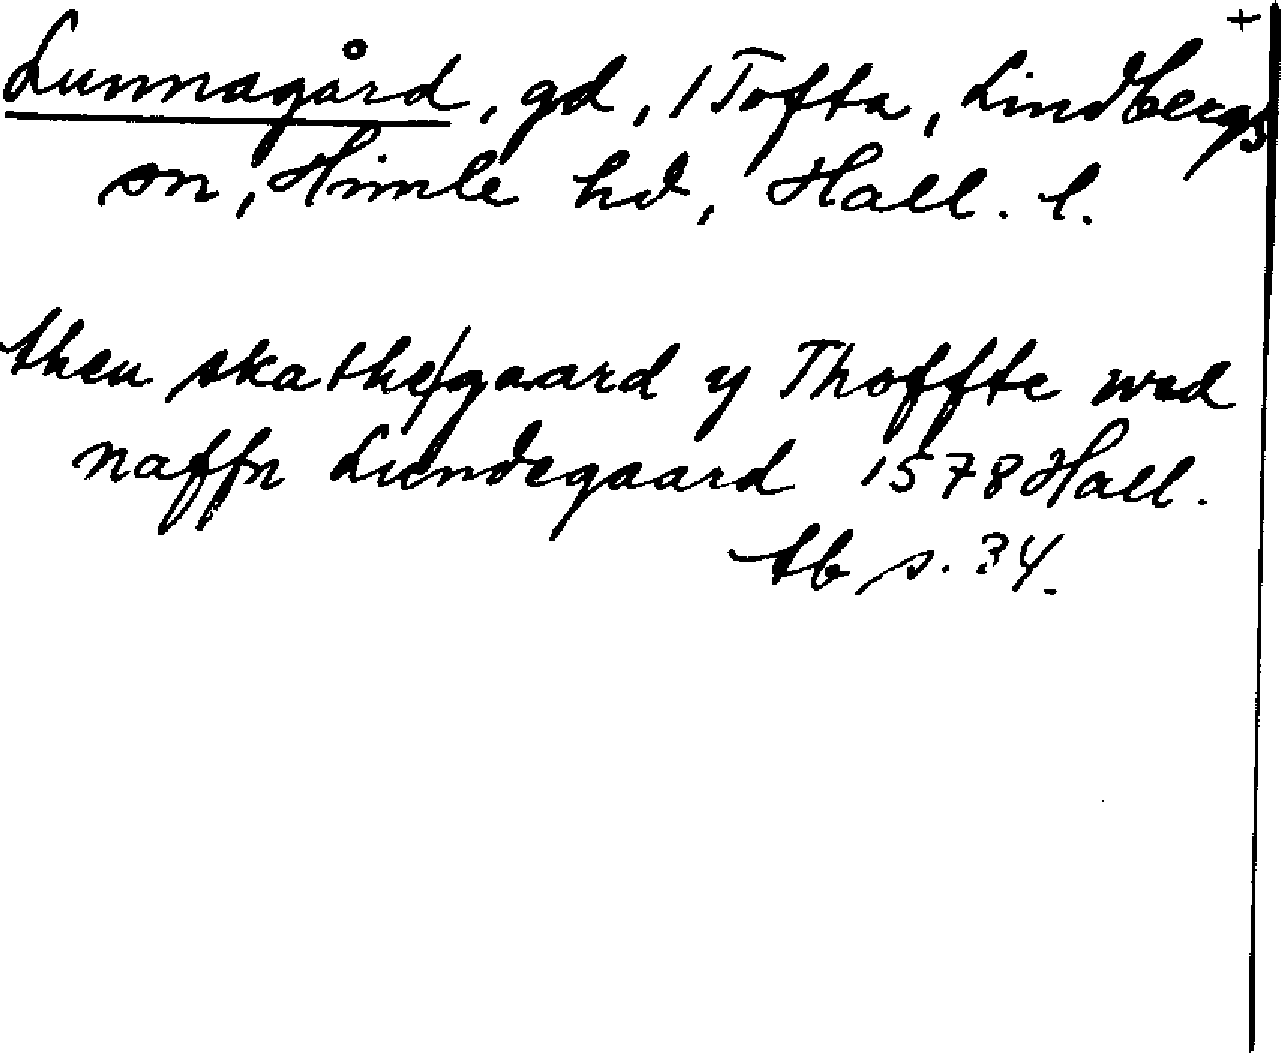 +
Lunnagård, gd, 1 Tofta, Lindbergs
sn, Himle hd, Hall. l.
then skathe/gaard y Thoffte wed
naffn Lundegaard 1578 Hall.
tb s. 34.